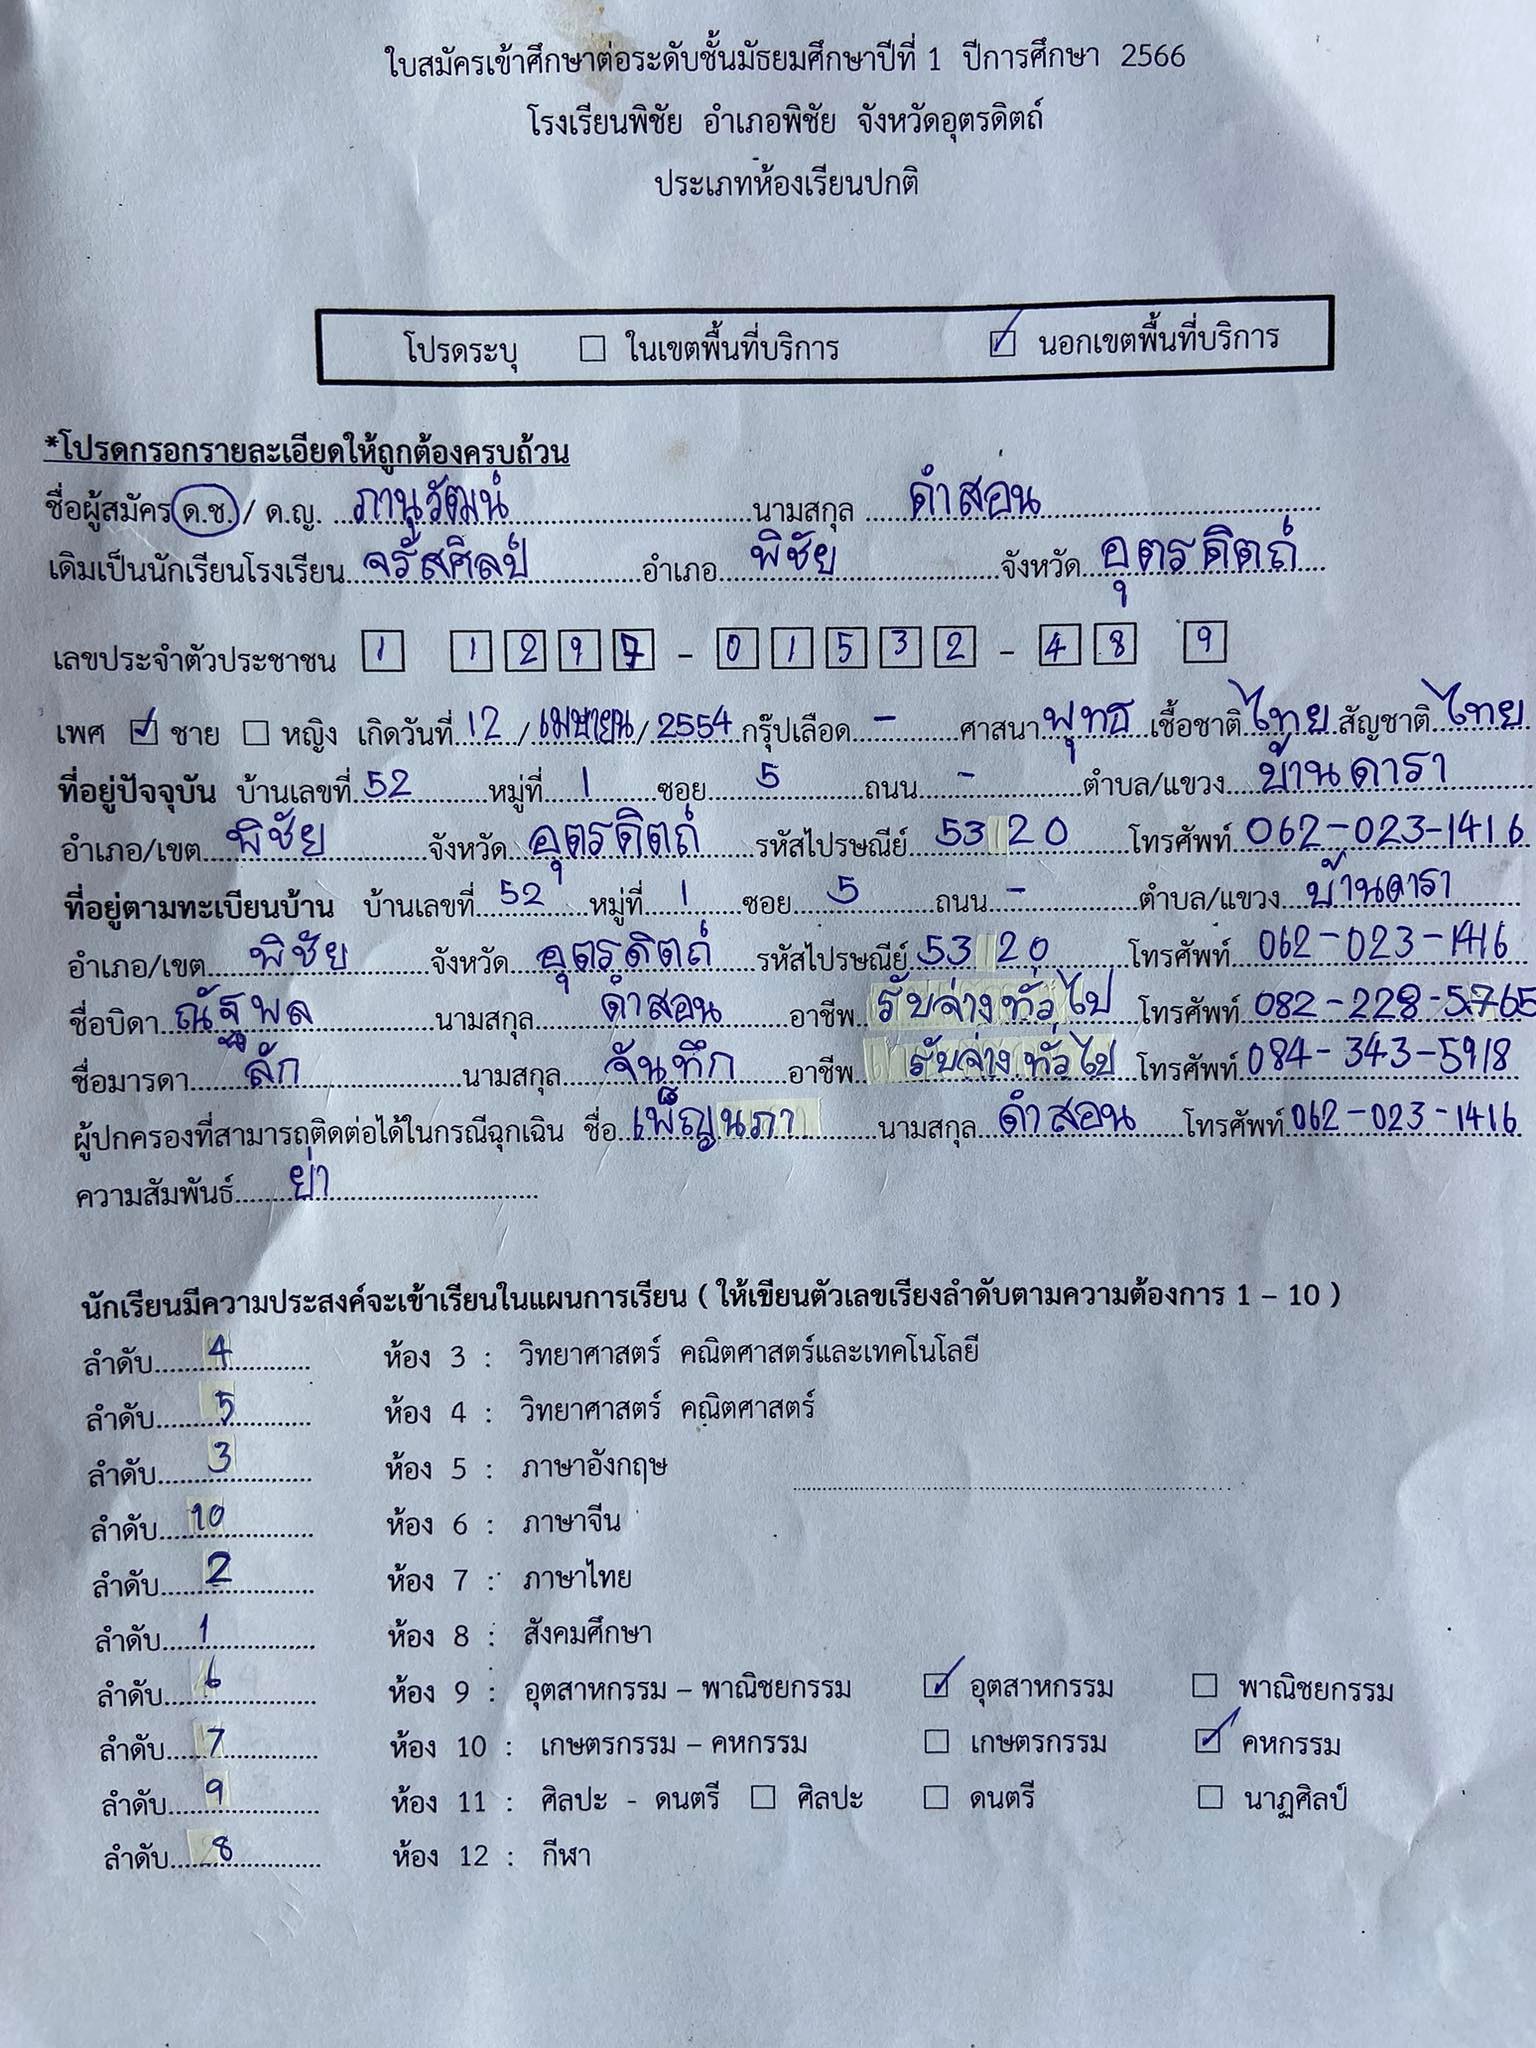 ใบสมัครเข้าศึกษาต่อระดับชั้นมัธยมศึกษาปีที่ 1 ปีการศึกษา 2566
โรงเรียนพิชัย อำเภอพิชัย จังหวัดอุตรดิตถ์
ประเภทห้องเรียนปกติ
โปรดระบุ ☐ ในเขตพื้นที่บริการ ☑ นอกเขตพื้นที่บริการ
*โปรดกรอกรายละเอียดให้ถูกต้องครบถ้วน
ชื่อผู้สมัคร ด.ช. / ด.ญ. ภานุวัฒน์ นามสกุล ดำสอน
เดิมเป็นนักเรียนโรงเรียน จรัสศิลป์ อำเภอ พิชัย จังหวัด อุตรดิตถ์
เลขประจำตัวประชาชน 1 1297 - 01532 - 48 9
เพศ ☑ ชาย ☐ หญิง เกิดวันที่ 12 / เมษายน / 2554 กรุ๊ปเลือด - ศาสนา พุทธ เชื้อชาติ ไทย สัญชาติ ไทย
ที่อยู่ปัจจุบัน บ้านเลขที่ 52 หมู่ที่ 1 ซอย 5 ถนน - ตำบล/แขวง บ้านดารา
อำเภอ/เขต พิชัย จังหวัด อุตรดิตถ์ รหัสไปรษณีย์ 53120 โทรศัพท์ 062-023-1416
ที่อยู่ตามทะเบียนบ้าน บ้านเลขที่ 52 หมู่ที่ 1 ซอย 5 ถนน - ตำบล/แขวง บ้านดารา
อำเภอ/เขต พิชัย จังหวัด อุตรดิตถ์ รหัสไปรษณีย์ 53120 โทรศัพท์ 062-023-1416
ชื่อบิดา ณัฐพล นามสกุล ดำสอน อาชีพ รับจ่างทั่วไป โทรศัพท์ 082-228-5765
ชื่อมารดา ลัก นามสกุล จันทึก อาชีพ รับจ่างทั่วไป โทรศัพท์ 084-343-5918
ผู้ปกครองที่สามารถติดต่อได้ในกรณีฉุกเฉิน ชื่อ เพ็ญนภา นามสกุล ดำสอน โทรศัพท์ 062-023-1416
ความสัมพันธ์ ย่า
นักเรียนมีความประสงค์จะเข้าเรียนในแผนการเรียน ( ให้เขียนตัวเลขเรียงลำดับตามความต้องการ 1 – 10 )
ลำดับ 4 ห้อง 3 : วิทยาศาสตร์ คณิตศาสตร์และเทคโนโลยี
ลำดับ 5 ห้อง 4 : วิทยาศาสตร์ คณิตศาสตร์
ลำดับ 3 ห้อง 5 : ภาษาอังกฤษ
ลำดับ 10 ห้อง 6 : ภาษาจีน
ลำดับ 2 ห้อง 7 : ภาษาไทย
ลำดับ 1 ห้อง 8 : สังคมศึกษา
ลำดับ 6 ห้อง 9 : อุตสาหกรรม – พาณิชยกรรม ☑ อุตสาหกรรม ☐ พาณิชยกรรม
ลำดับ 7 ห้อง 10 : เกษตรกรรม – คหกรรม ☐ เกษตรกรรม ☑ คหกรรม
ลำดับ 9 ห้อง 11 : ศิลปะ - ดนตรี ☐ ศิลปะ ☐ ดนตรี ☐ นาฏศิลป์
ลำดับ 8 ห้อง 12 : กีฬา